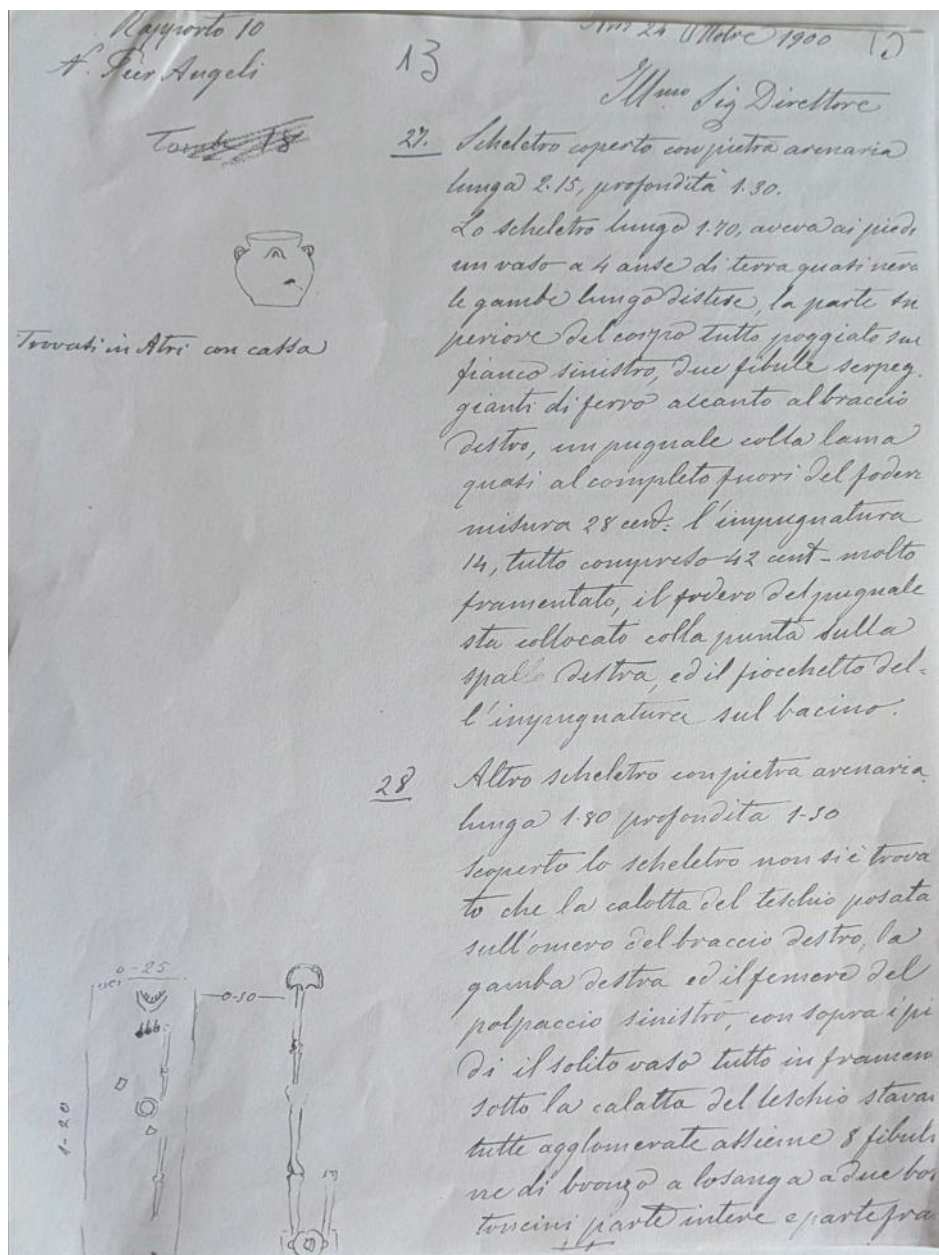 Rapporto 10
Atri 24 Ottobre 1900
N. Pier Angeli
13
Ill.mo Sig Direttore
Tomba 18
27. Scheletro coperto con pietra arenaria
lunga 2.15, profondità 1.30.
Lo scheletro lungo 1.70, aveva ai piedi
un vaso a 4 anse di terra quasi nera
le gambe lungo distese, la parte su
periore del corpo tutto poggiato sul
Trovasi in Atri con cassa
fianco sinistro, due fibule serpeg.
gianti di ferro accanto al braccio
destro, un pugnale colla lama
quasi al completo fuori del fodero
misura 28 cent: l'impugnatura
14, tutto compreso 42 cent - molto
framentato, il fodero del pugnale
sta collocato colla punta sulla
spalla destra, ed il fiocchetto del=
l'impugnatura sul bacino.
28 Altro scheletro con pietra arenaria
lunga 1.80 profondità 1-50
scoperto lo scheletro non si è trova
to che la calotta del teschio posata
sull'omero del braccio destro, la
gamba destra ed il femore del
polpaccio sinistro, con sopra i pi
di il solito vaso tutto in framen
sotto la calatta del teschio stavan
tutte agglomerate assieme 8 fibuli
ne di bronzo a losanga a due bot
toncini parte intere e parte fra
0-25
0-50
1-20